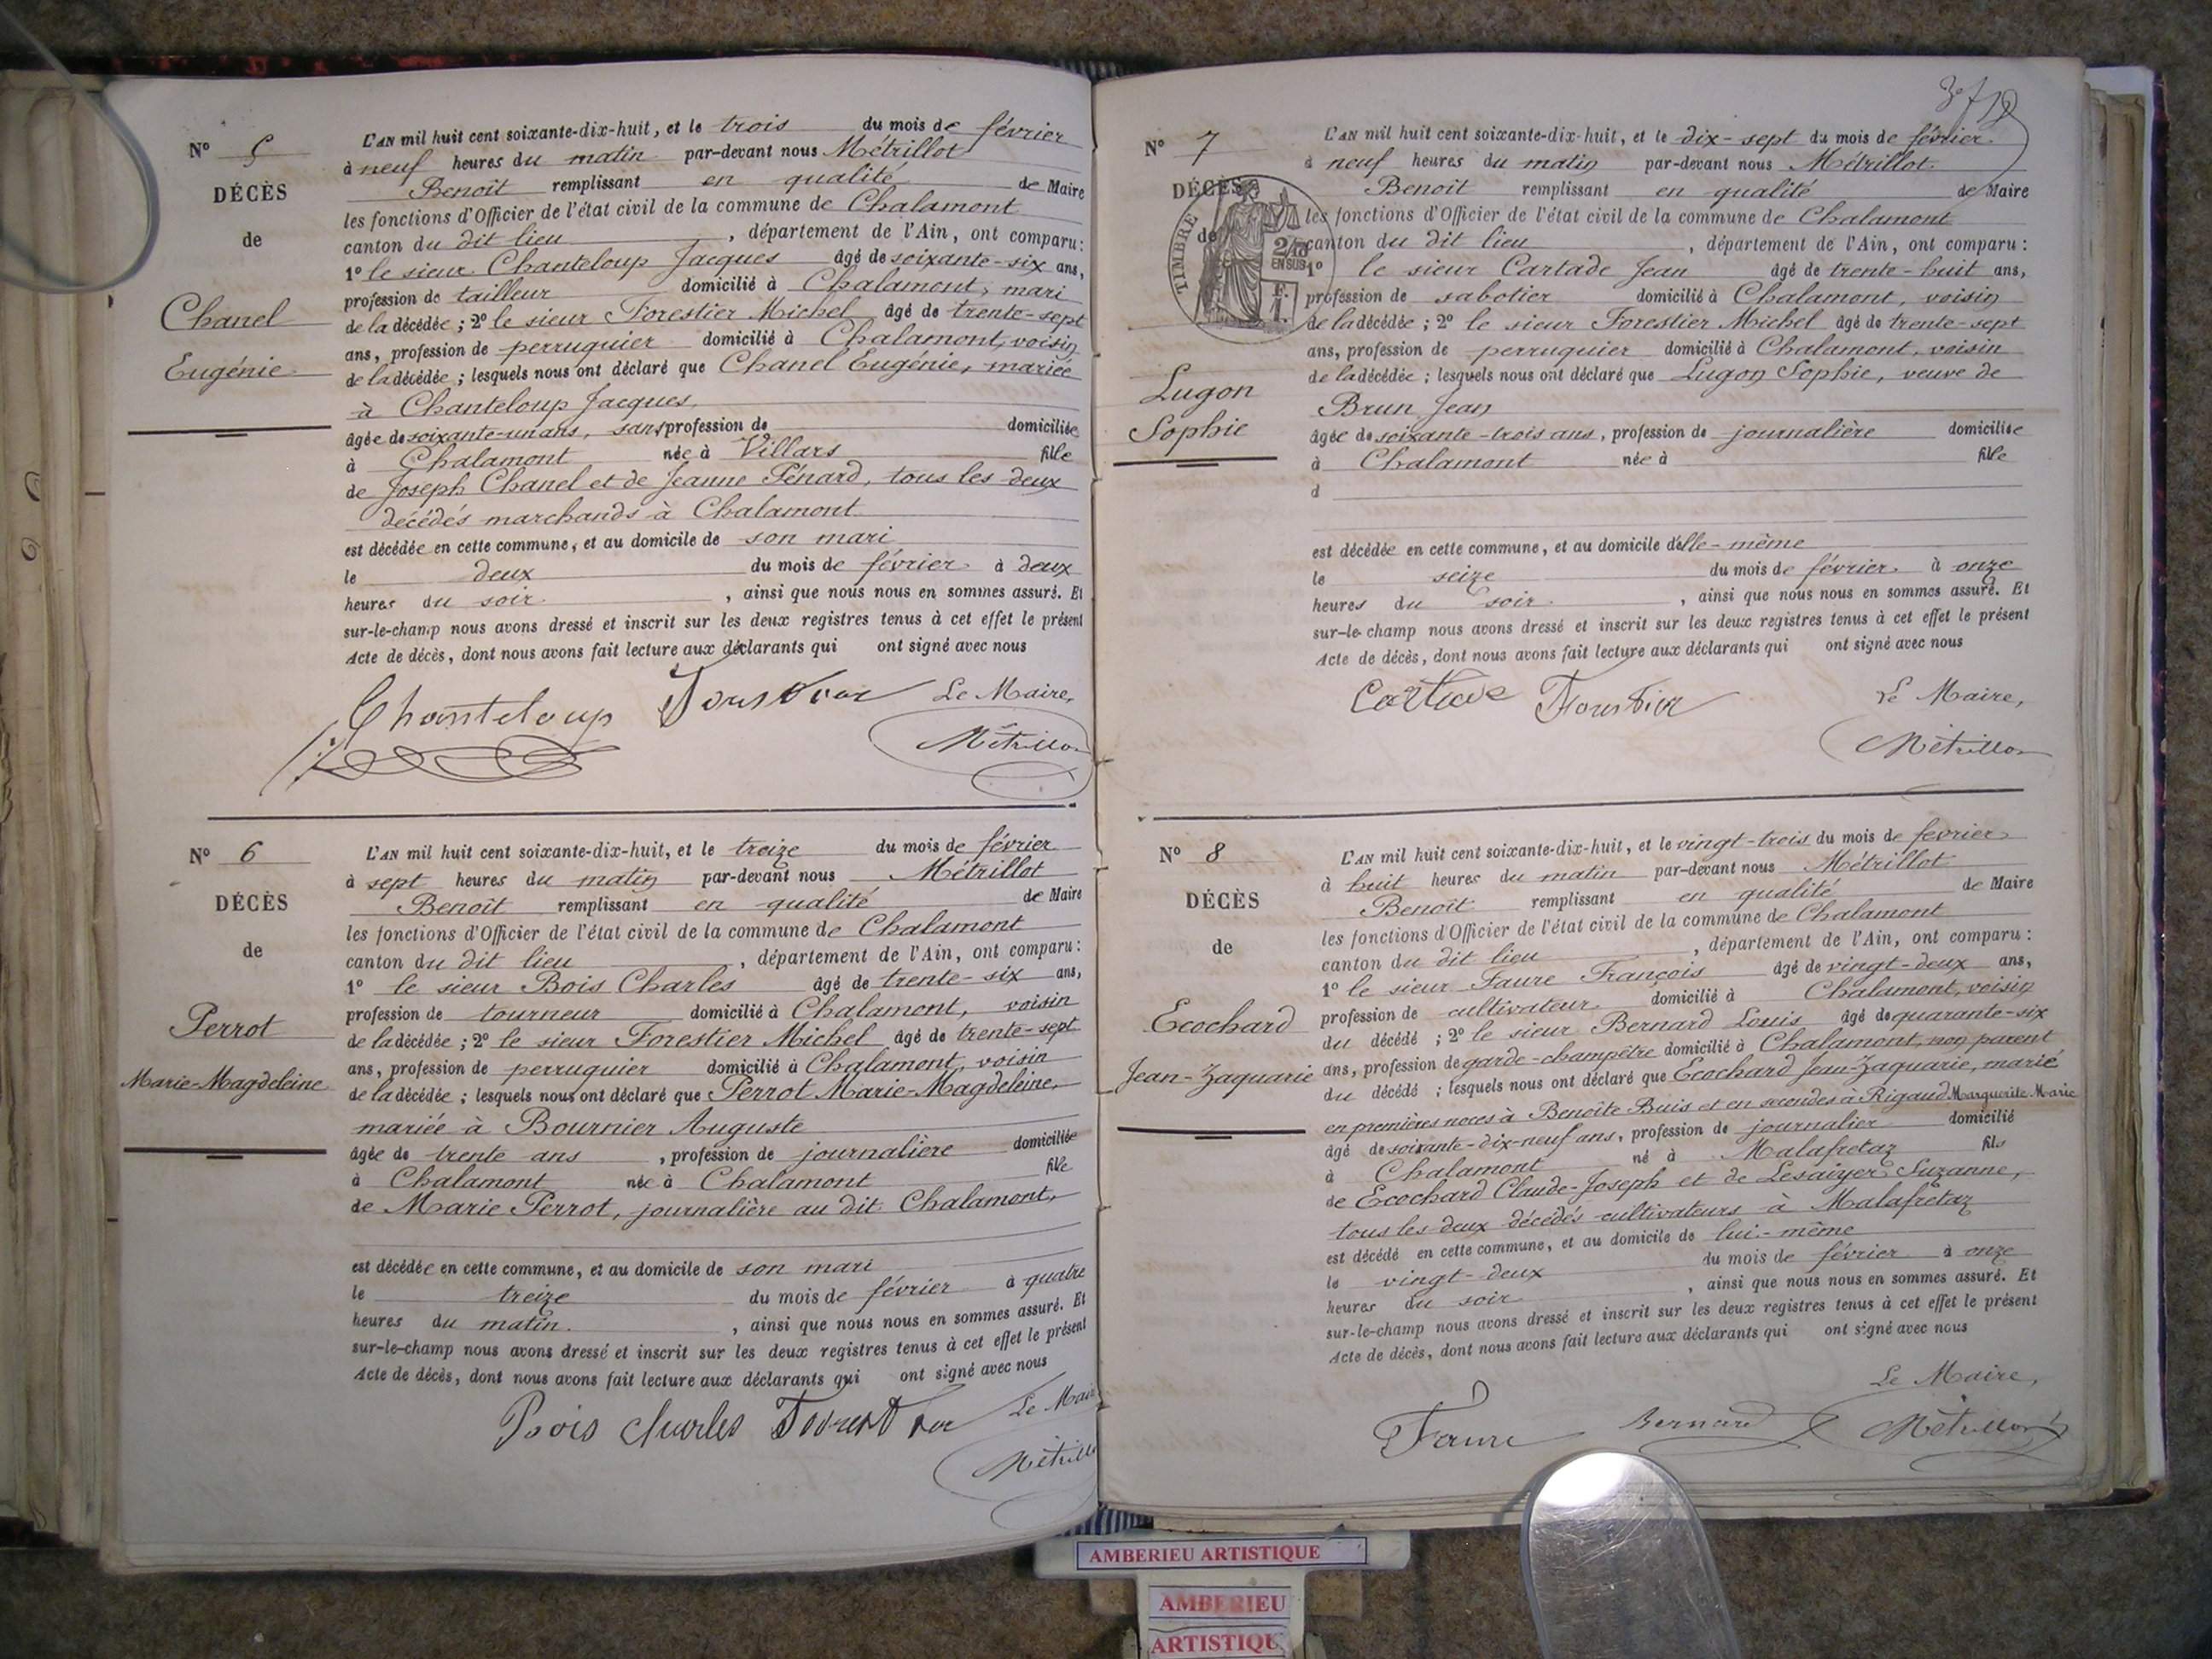 N° 5
DÉCÈS
de
Chanel
Eugénie
L'AN mil huit cent soixante-dix-huit, et le trois du mois de février
à neuf heures du matin par-devant nous Métrillot
Benoît remplissant en qualité de Maire
les fonctions d'Officier de l'état civil de la commune de Chalamont
canton du dit lieu, département de l'Ain, ont comparu :
1° le sieur Chanteloup Jacques âgé de soixante-six ans,
profession de tailleur domicilié à Chalamont, mari
de la décédée ; 2° le sieur Forestier Michel âgé de trente-sept
ans, profession de perruquier domicilié à Chalamont, voisin
de la décédée ; lesquels nous ont déclaré que Chanel Eugénie, mariée
à Chanteloup Jacques,
âgée de soixante-un ans, sans profession de domiciliée
à Chalamont née à Villars fille
de Joseph Chanel et de Jeanne Pénard, tous les deux
décédés marchands à Chalamont
est décédée en cette commune, et au domicile de son mari
le deux du mois de février à deux
heures du soir, ainsi que nous nous en sommes assuré. Et
sur-le-champ nous avons dressé et inscrit sur les deux registres tenus à cet effet le présent
Acte de décès, dont nous avons fait lecture aux déclarants qui ont signé avec nous
Chanteloup Forestier Le Maire,
Métrillot
N° 6
DÉCÈS
de
Perrot
Marie-Magdeleine
L'AN mil huit cent soixante-dix-huit, et le treize du mois de février
à sept heures du matin par-devant nous Métrillot
Benoît remplissant en qualité de Maire
les fonctions d'Officier de l'état civil de la commune de Chalamont
canton du dit lieu, département de l'Ain, ont comparu :
1° le sieur Bois Charles âgé de trente-six ans,
profession de tourneur domicilié à Chalamont, voisin
de la décédée ; 2° le sieur Forestier Michel âgé de trente-sept
ans, profession de perruquier domicilié à Chalamont, voisin
de la décédée ; lesquels nous ont déclaré que Perrot Marie-Magdeleine,
mariée à Bournier Auguste
âgée de trente ans, profession de journalière domiciliée
à Chalamont née à Chalamont fille
de Marie Perrot, journalière au dit Chalamont,
est décédée en cette commune, et au domicile de son mari
le treize du mois de février à quatre
heures du matin, ainsi que nous nous en sommes assuré. Et
sur-le-champ nous avons dressé et inscrit sur les deux registres tenus à cet effet le présent
Acte de décès, dont nous avons fait lecture aux déclarants qui ont signé avec nous
Bois Charles Forestier Le Maire
Métrillot
N° 7
DÉCÈS
de
TIMBRE
2/10
EN SUS
Lugon
Sophie
L'AN mil huit cent soixante-dix-huit, et le dix-sept du mois de février
à neuf heures du matin par-devant nous Métrillot
Benoît remplissant en qualité de Maire
les fonctions d'Officier de l'état civil de la commune de Chalamont
canton du dit lieu, département de l'Ain, ont comparu :
1° le sieur Cartade Jean âgé de trente-huit ans,
profession de sabotier domicilié à Chalamont, voisin
de la décédée ; 2° le sieur Forestier Michel âgé de trente-sept
ans, profession de perruquier domicilié à Chalamont, voisin
de la décédée ; lesquels nous ont déclaré que Lugon Sophie, veuve de
Brun Jean
âgée de soixante-trois ans, profession de journalière domiciliée
à Chalamont née à fille
d
est décédée en cette commune, et au domicile d'elle-même
le seize du mois de février à onze
heures du soir, ainsi que nous nous en sommes assuré. Et
sur-le-champ nous avons dressé et inscrit sur les deux registres tenus à cet effet le présent
Acte de décès, dont nous avons fait lecture aux déclarants qui ont signé avec nous
Cartade Forestier Le Maire,
Métrillot
N° 8
DÉCÈS
de
Ecochard
Jean-Zaquarie
L'AN mil huit cent soixante-dix-huit, et le vingt-trois du mois de fevrier
à huit heures du matin par-devant nous Métrillot
Benoît remplissant en qualité de Maire
les fonctions d'Officier de l'état civil de la commune de Chalamont
canton du dit lieu, département de l'Ain, ont comparu :
1° le sieur Faure François âgé de vingt-deux ans,
profession de cultivateur domicilié à Chalamont, voisin
du décédé ; 2° le sieur Bernard Louis âgé de quarante-six
ans, profession de garde-champêtre domicilié à Chalamont, non parent
du décédé ; lesquels nous ont déclaré que Ecochard Jean-Zaquarie, marié
en premières noces à Benoîte Buis et en secondes à Rigaud Marguerite Marie
âgé de soixante-dix-neuf ans, profession de journalier domicilié
à Chalamont né à Malafretaz fils
de Ecochard Claude-Joseph et de Lesaiyer Suzanne,
tous les deux décédés cultivateurs à Malafretaz
est décédé en cette commune, et au domicile de lui-même
le vingt-deux du mois de février à onze
heures du soir, ainsi que nous nous en sommes assuré. Et
sur-le-champ nous avons dressé et inscrit sur les deux registres tenus à cet effet le présent
Acte de décès, dont nous avons fait lecture aux déclarants qui ont signé avec nous
Le Maire,
Faure Bernard Métrillot
AMBERIEU ARTISTIQUE
AMBERIEU
ARTISTIQUE